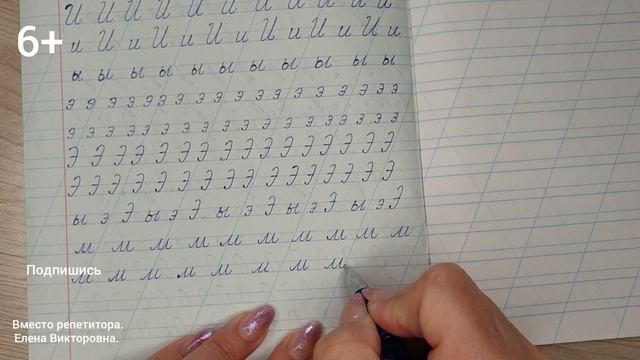 6+
И И И И И И И И И И И
и И и И и И и И и И и И и
ы ы ы ы ы ы ы ы ы ы
э э э э э э э э э э э э э э э э э э
э э э э э э э э э э э э э э э э э э
Э Э Э Э Э Э Э Э Э Э Э Э Э Э Э Э
Э Э Э Э Э Э Э Э Э Э Э Э Э Э Э Э
ы э Э ы э Э ы э Э ы э Э ы э Э
м м м м м м м м м м
м м м м м м м м
Подпишись
Вместо репетитора.
Елена Викторовна.